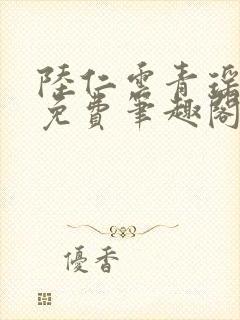 陸仁雲青瑶
免費筆趣閣
優香